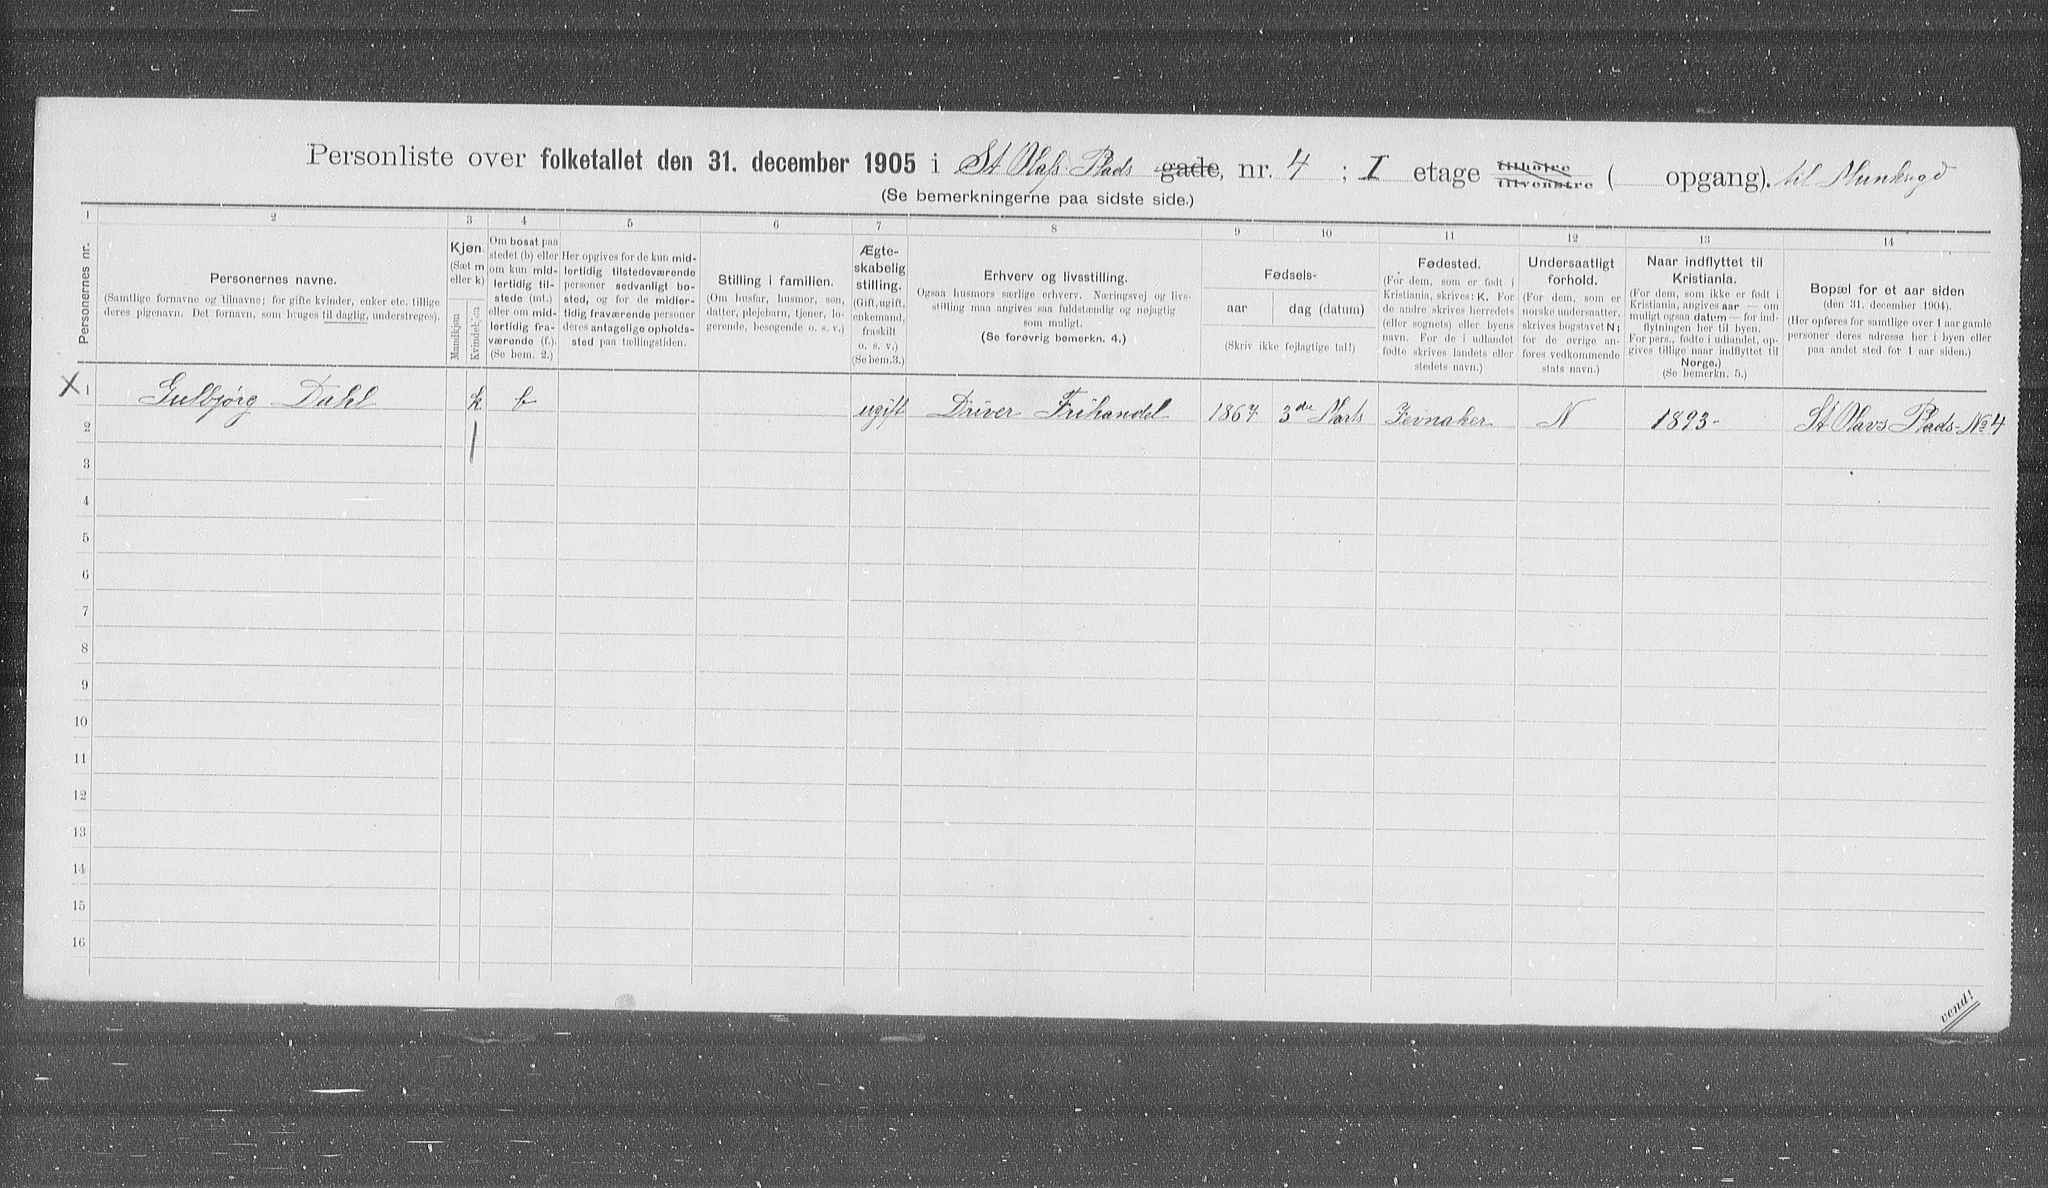 Personliste over folketallet den 31. december 1905 i St Olafs Plads gade, nr. 4 ; I etage tilhøire tilvenstre ( opgang). til Munkegd
(Se bemerkningerne paa sidste side.)
1 2 3 4 5 6 7 8 9 10 11 12 13 14
Personernes nr.
Personernes navne.
(Samtlige fornavne og tilnavne; for gifte kvinder, enker etc. tillige
deres pigenavn. Det fornavn, som bruges til daglig, understreges).
Kjøn.
(Sæt m
eller k)
Mandkjøn
Kvindekjøn
Om bosat paa
stedet (b) eller
om kun mid-
lertidig til-
stede (mt.)
eller om mid-
lertidig fra-
værende (f.).
(Se bem. 2.)
Her opgives for de kun mid-
lertidig tilstedeværende
personer sedvanlig bo-
sted, og for de midler-
tidig fraværende personer
deres antagelige opholds-
sted paa tællingstiden.
Stilling i familien.
(Om husfar, husmor, søn,
datter, plejebarn, tjener, lo-
gerende, besøgende o. s. v.)
Ægte-
skabelig
stilling.
(Gift, ugift,
enkemand,
fraskilt
o. s. v.)
(Se bem.3.)
Erhverv og livsstilling.
Ogsaa husmors særlige erhverv. Næringsvej og livs-
stilling maa angives saa fuldstændig og nøjagtig
som muligt.
(Se forøvrig bemerkn. 4.)
Fødsels-
aar dag (datum)
(Skriv ikke fejlagtige tal!)
Fødested.
(For dem, som er født i
Kristiania, skrives: K. For
de andre skrives herredets
(eller sognets) eller byens
navn. For de i udlandet
fødte skrives landets eller
stedets navn.)
Undersaatligt
forhold.
(For dem, som er
norske undersaatter,
skrives bogstavet N;
for de øvrige an-
føres vedkommende
stats navn.)
Naar indflyttet til
Kristiania.
(For dem, som ikke er født i
Kristiania, angives aar — om
muligt ogsaa datum — for ind-
flytningen her til byen.
For pers., fødte i udlandet, op-
gives tillige naar indflyttet til
Norge.)
(Se bemerkn. 5.)
Bopæl for et aar siden
(den 31. december 1904).
(Her opføres for samtlige over 1 aar gamle
personer deres adresse her i byen eller
paa andet sted for 1 aar siden.)
X 1 Gulbjørg Dahl k b ugift Driver Frihandel 1867 3de Marts Jevnaker N 1893- St Olavs Plads- No 4
2 1
3
4
5
6
7
8
9
10
11
12
13
14
15
16
vend!